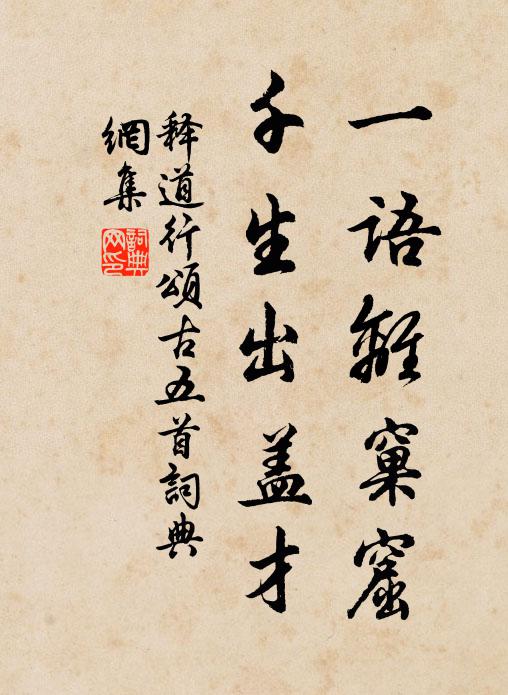 一語離窠窟
千生出盖才
释道行頌古五首詞典
網集
詞典網印